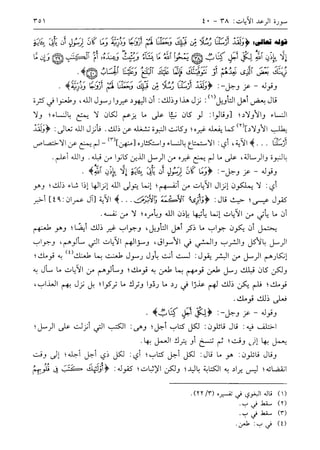 سورة الرعد الآيات: ٣٨ - ٤٠ ٣٥١
قوله تعالى: ﴿وَلَقَدْ أَرْسَلْنَا رُسُلًا مِّن قَبْلِكَ وَجَعَلْنَا لَهُمْ أَزْوَاجًا وَذُرِّيَّةً وَمَا كَانَ لِرَسُولٍ أَن يَأْتِيَ بِآيَةٍ
إِلَّا بِإِذْنِ اللَّهِ لِكُلِّ أَجَلٍ كِتَابٌ ﴿٣٨﴾ يَمْحُوا اللَّهُ مَا يَشَاءُ وَيُثْبِتُ وَعِندَهُ أُمُّ الْكِتَابِ ﴿٣٩﴾ وَإِن مَّا
نُرِيَنَّكَ بَعْضَ الَّذِي نَعِدُهُمْ أَوْ نَتَوَفَّيَنَّكَ فَإِنَّمَا عَلَيْكَ الْبَلَاغُ وَعَلَيْنَا الْحِسَابُ﴾.
وقوله - عز وجل-: ﴿وَلَقَدْ أَرْسَلْنَا رُسُلًا مِّن قَبْلِكَ وَجَعَلْنَا لَهُمْ أَزْوَاجًا وَذُرِّيَّةً﴾.
قال بعض أهل التأويل(١): نزل هذا وذلك: أن اليهود عيروا رسول الله، وطعنوا في كثرة
النساء والأولاد؛ [وقالوا: لو كان نبيًّا على ما يزعم لكان لا يمتع بالنساء؛ ولا
يطلب الأولاد](٢) كما يفعله غيره؛ وكانت النبوة تشغله عن ذلك. فأنزل الله تعالى: ﴿وَلَقَدْ
...﴾ الآية، أي: الاستمتاع بالنساء واستكثاره [منهن](٣) - لم يمنع عن الاختصاص
بالنبوة والرسالة، على ما لم يمنع غيره من الرسل الذين كانوا من قبله. والله أعلم.
وقوله - عز وجل-: ﴿وَمَا كَانَ لِرَسُولٍ أَن يَأْتِيَ بِآيَةٍ إِلَّا بِإِذْنِ اللَّهِ﴾.
أي: لا يملكون إنزال الآيات من أنفسهم؛ إنما يتولى الله إنزالها إذا شاء ذلك؛ وهو
كقول عيسى؛ حيث قال: ﴿وَأُبْرِئُ الْأَكْمَهَ وَالْأَبْرَصَ...﴾ الآية [آل عمران: ٤٩] أخبر
أن ما يأتي من الآيات إنما يأتيها بإذن الله وبأمره؛ لا من نفسه.
يحتمل أن يكون جواب ما ذكر أهل التأويل، وجواب غير ذلك أيضًا؛ وهو طعنهم
الرسل بالأكل والشرب والمشي في الأسواق، وسؤالهم الآيات التي سألوهم، وجواب
إنكارهم الرسل من البشر يقول: لست أنت بأول رسول طعنت بما طعنك(٤) به قومك؛
ولكن كان قبلك رسل طعن قومهم بما طعن به قومك؛ وسألوهم من الآيات ما سأل به
قومك؛ فلم يكن ذلك لهم عذرًا في رد ما ردوا وترك ما تركوا؛ بل نزل بهم العذاب،
فعلى ذلك قومك.
وقوله - عز وجل-: ﴿لِكُلِّ أَجَلٍ كِتَابٌ﴾.
اختلف فيه: قال قائلون: لكل كتاب أجل؛ وهي: الكتب التي أنزلت على الرسل؛
يعمل بها إلى وقت؛ ثم تنسخ أو يترك العمل بها.
وقال قائلون: هو ما قال: لكل أجل كتاب؛ أي: لكل ذي أجل أجله؛ إلى وقت
انقضائه؛ ليس يراد به الكتابة باليد؛ ولكن الإثبات؛ كقوله: ﴿أُولَٰئِكَ كَتَبَ فِي قُلُوبِهِمُ
(١) قاله البغوي في تفسيره (٢٢/٣).
(٢) سقط في ب.
(٣) سقط في ب.
(٤) في ب: طعن.